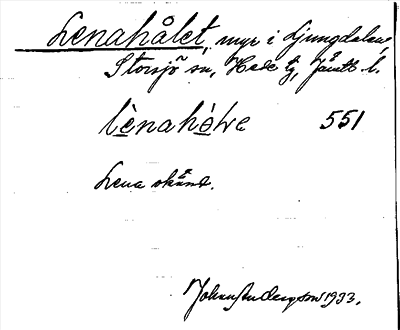 Lenahålet, myr i Ljungdalen,
Storsjö sn, Hede tg, Jämtl. l.
lènahòlve 551
Lena skänt.
Johan Anderzon 1933.